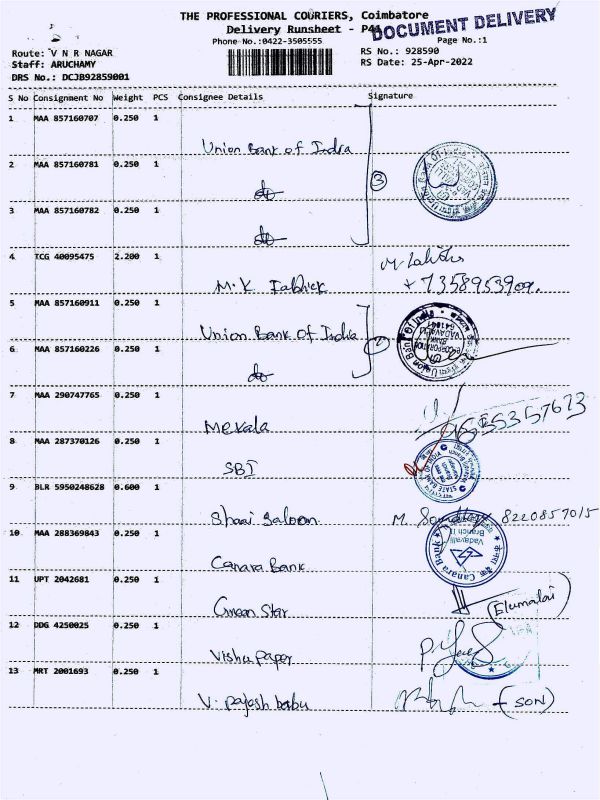 THE PROFESSIONAL COURIERS, Coimbatore
Delivery Runsheet - P44
DOCUMENT DELIVERY
Phone No.:0422-3505555
Page No.:1
Route: V N R NAGAR
RS No.: 928590
Staff: ARUCHAMY
RS Date: 25-Apr-2022
DRS No.: DCJB92859001
S No Consignment No Weight PCS Consignee Details Signature
1 MAA 857160707 0.250 1
Union Bank of India
2 MAA 857160781 0.250 1
do
3
3 MAA 857160782 0.250 1
do
4 TCG 40095475 2.200 1
M.K Fabrick
+7358953909.
5 MAA 857160911 0.250 1
Union Bank of India
2
6 MAA 857160226 0.250 1
do
7 MAA 290747765 0.250 1
Mekala
8 MAA 287370126 0.250 1
SBI
STATE BANK OF INDIA
9 BLR 5950248628 0.600 1
Saloon M. 8220857015
10 MAA 288369843 0.250 1
Canara Bank
Canara Bank
Vadavalli
Branch II
11 UPT 2042681 0.250 1
Green Star
(Elumalai)
12 DDG 4250025 0.250 1
Vishu paper
13 MRT 2001693 0.250 1
V. Rajesh babu
(SON)